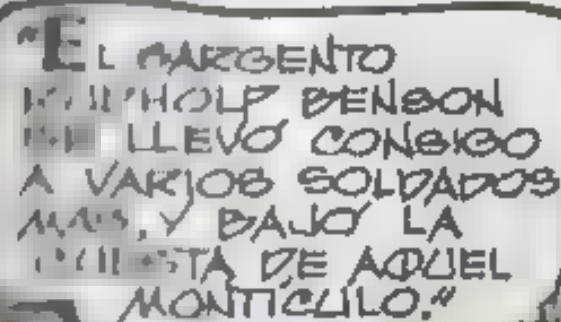 "EL SARGENTO
BENSON
SE LLEVÓ CONSIGO
A VARIOS SOLDADOS
MÁS, Y BAJÓ LA
CUESTA DE AQUEL
MONTÍCULO."